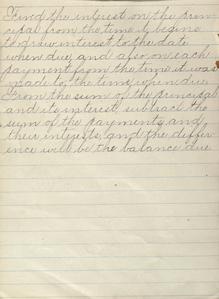 Find the interest on the prin-
cipal from the time it begins
to draw interest to the date
when due, and also on each
payment from the time it was
made to the time when due.
From the sum of the principal
and its interest, subtract the
sum of the payments and
their interests, and the differ-
ence will be the balance due